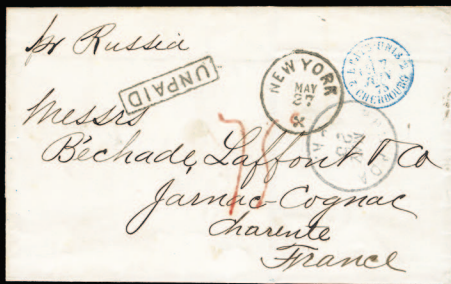 pr Russia
UNPAID
NEW YORK
MAY
27
CHERBOURG
Messrs
Béchade, Laffont & Co
Jarnac-Cognac
Charente
France